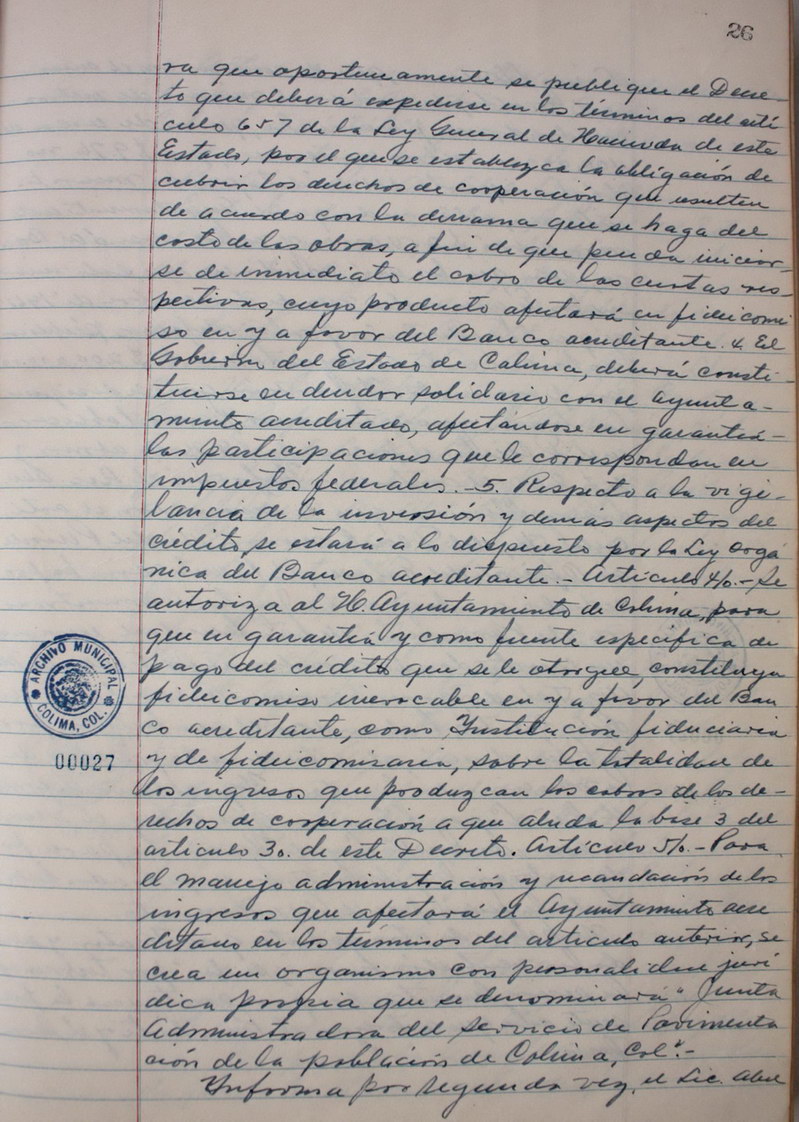 26
ra que oportunamente se publique el Decre-
to que deberá expedirse en los términos del artí
culo 657 de la Ley General de Hacienda de este
Estado, por el que se establezca la obligación de
cubrir los derechos de cooperación que resulten
de acuerdo con la derrama que se haga del
costo de las obras, a fin de que pueda iniciar-
se de inmediato el cobro de las cuotas res-
pectivas, cuyo producto afectará en fideicomi
so en y a favor del Banco acreditante. 4. El
Gobierno del Estado de Colima, deberá consti-
tuirse en deudor solidario con el Ayunta-
miento acreditado, afectándose en garantía
las participaciones que le correspondan en
impuestos federales.-5. Respecto a la vigi-
lancia de la inversión y demás aspectos del
crédito, se estará a lo dispuesto por la Ley orgá
nica del Banco acreditante.- Artículo 4/o.- Se
autoriza al H. Ayuntamiento de Colima, para
que en garantía y como fuente específica de
pago del crédito que se le otorgue, constituya
fideicomiso irrevocable en y a favor del Ban
co acreditante, como Institución fiduciaria
y de fideicomisaria, sobre la totalidad de
los ingresos que produzcan los cobros de los de-
rechos de cooperación a que aluda la base 3 del
artículo 3o. de este Decreto. Artículo 5/o.- Para
el manejo administración y recaudación de los
ingresos que afectará el Ayuntamiento acre
ditado en los términos del artículo anterior, se
crea un organismo con personalidad jurí
dica propia que se denominará "Junta
Administradora del Servicio de Pavimenta
ción de la población de Colima, Col".-
Informa por segunda vez, el Lic. Abel
ARCHIVO MUNICIPAL
COLIMA, COL.
00027